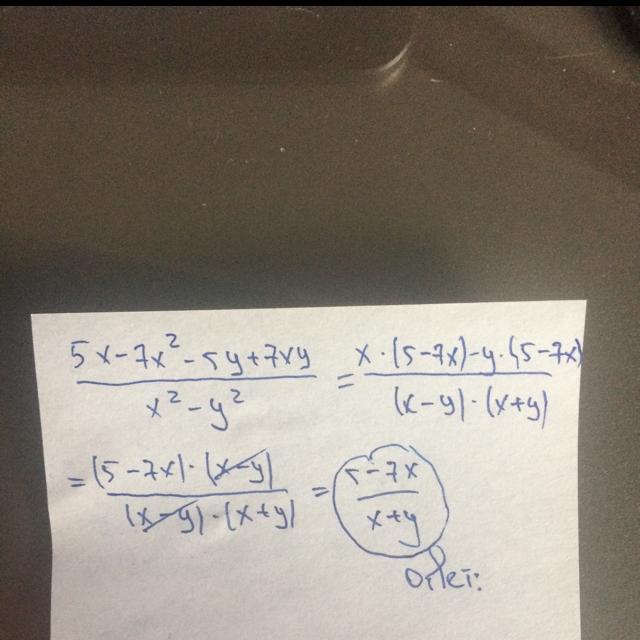 5x-7x²-5y+7xy / x²-y² = x·(5-7x)-y·(5-7x) / (x-y)·(x+y)
= (5-7x)·(x-y) / (x-y)·(x+y) = 5-7x / x+y